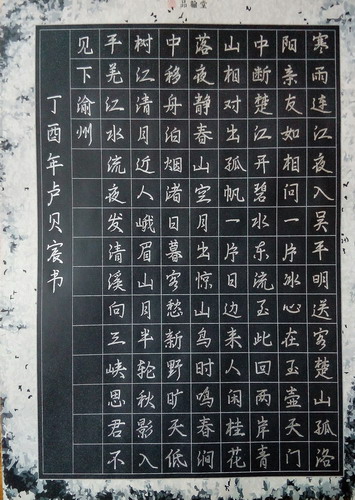 品翰堂
寒雨连江夜入吴平明送客楚山孤洛
阳亲友如相问一片冰心在玉壶天门
中断楚江开碧水东流至此回两岸青
山相对出孤帆一片日边来人闲桂花
落夜静春山空月出惊山鸟时鸣春涧
中移舟泊烟渚日暮客愁新野旷天低
树江清月近人峨眉山月半轮秋影入
平羌江水流夜发清溪向三峡思君不
见下渝州
丁酉年卢贝宸书